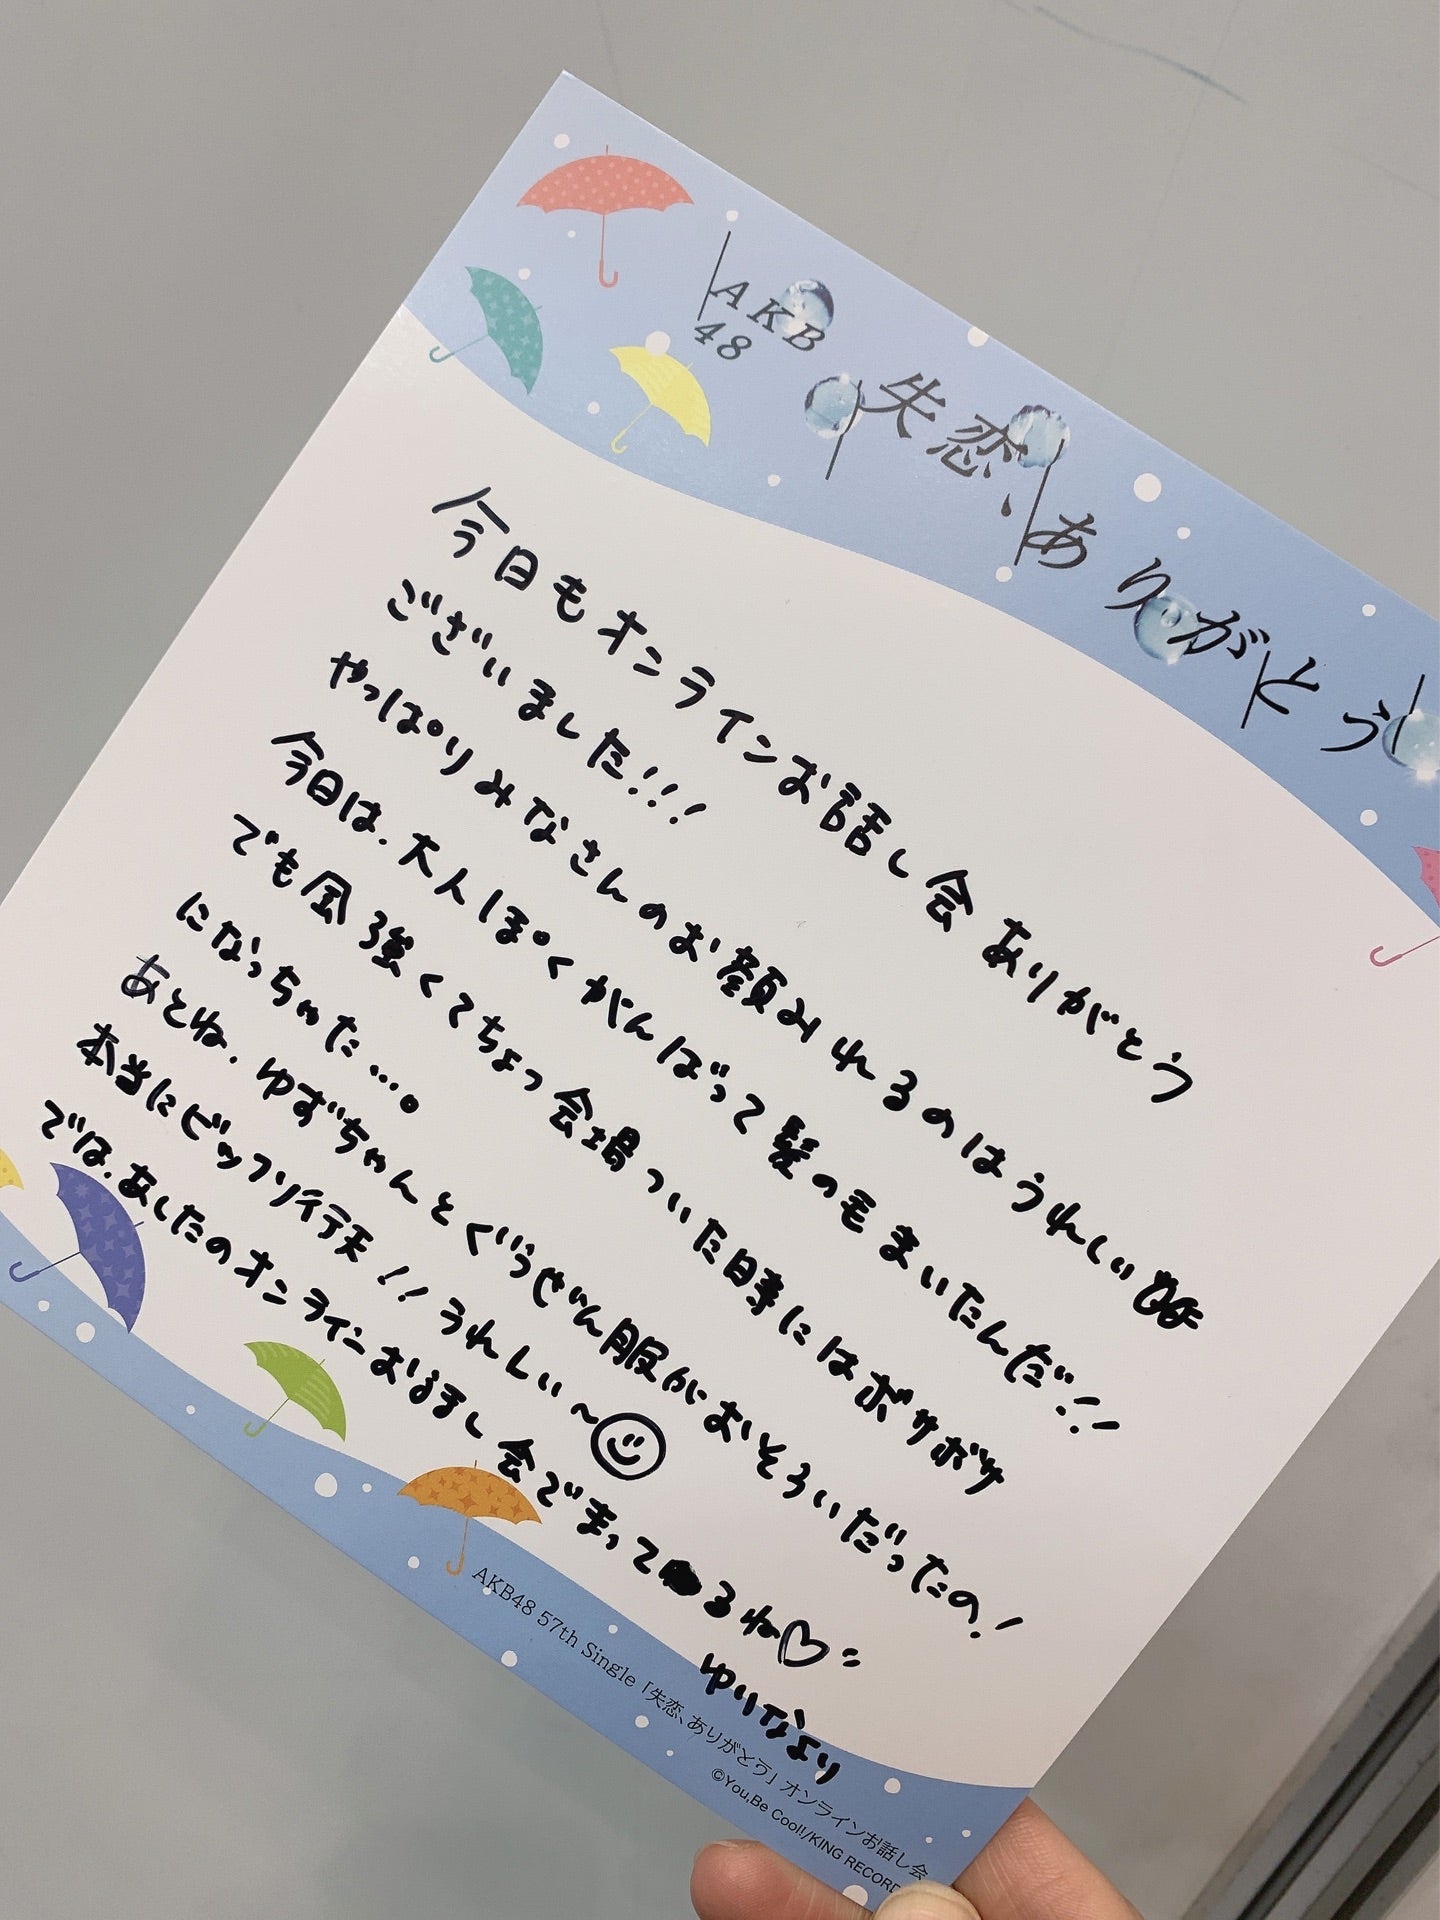 AKB
48
失恋、ありがとう
今日もオンラインお話し会ありがとう
ございました!!!
やっぱりみなさんのお顔みれるのはうれしい
今日は、大人ぽくがんばって髪の毛まいたんだ!!
でも風強くてちょっ会場ついた時にはボサボサ
になっちゃった…。
あとね、ゆずちゃんとぐうぜん服がおそろいだったの!
本当にビックリ行天!!うれしい〜
では、あしたのオンラインお話し会でまってるね♡
ゆりなより
AKB48 57th Single「失恋、ありがとう」オンラインお話し会
©You,Be Cool!/KING RECORD